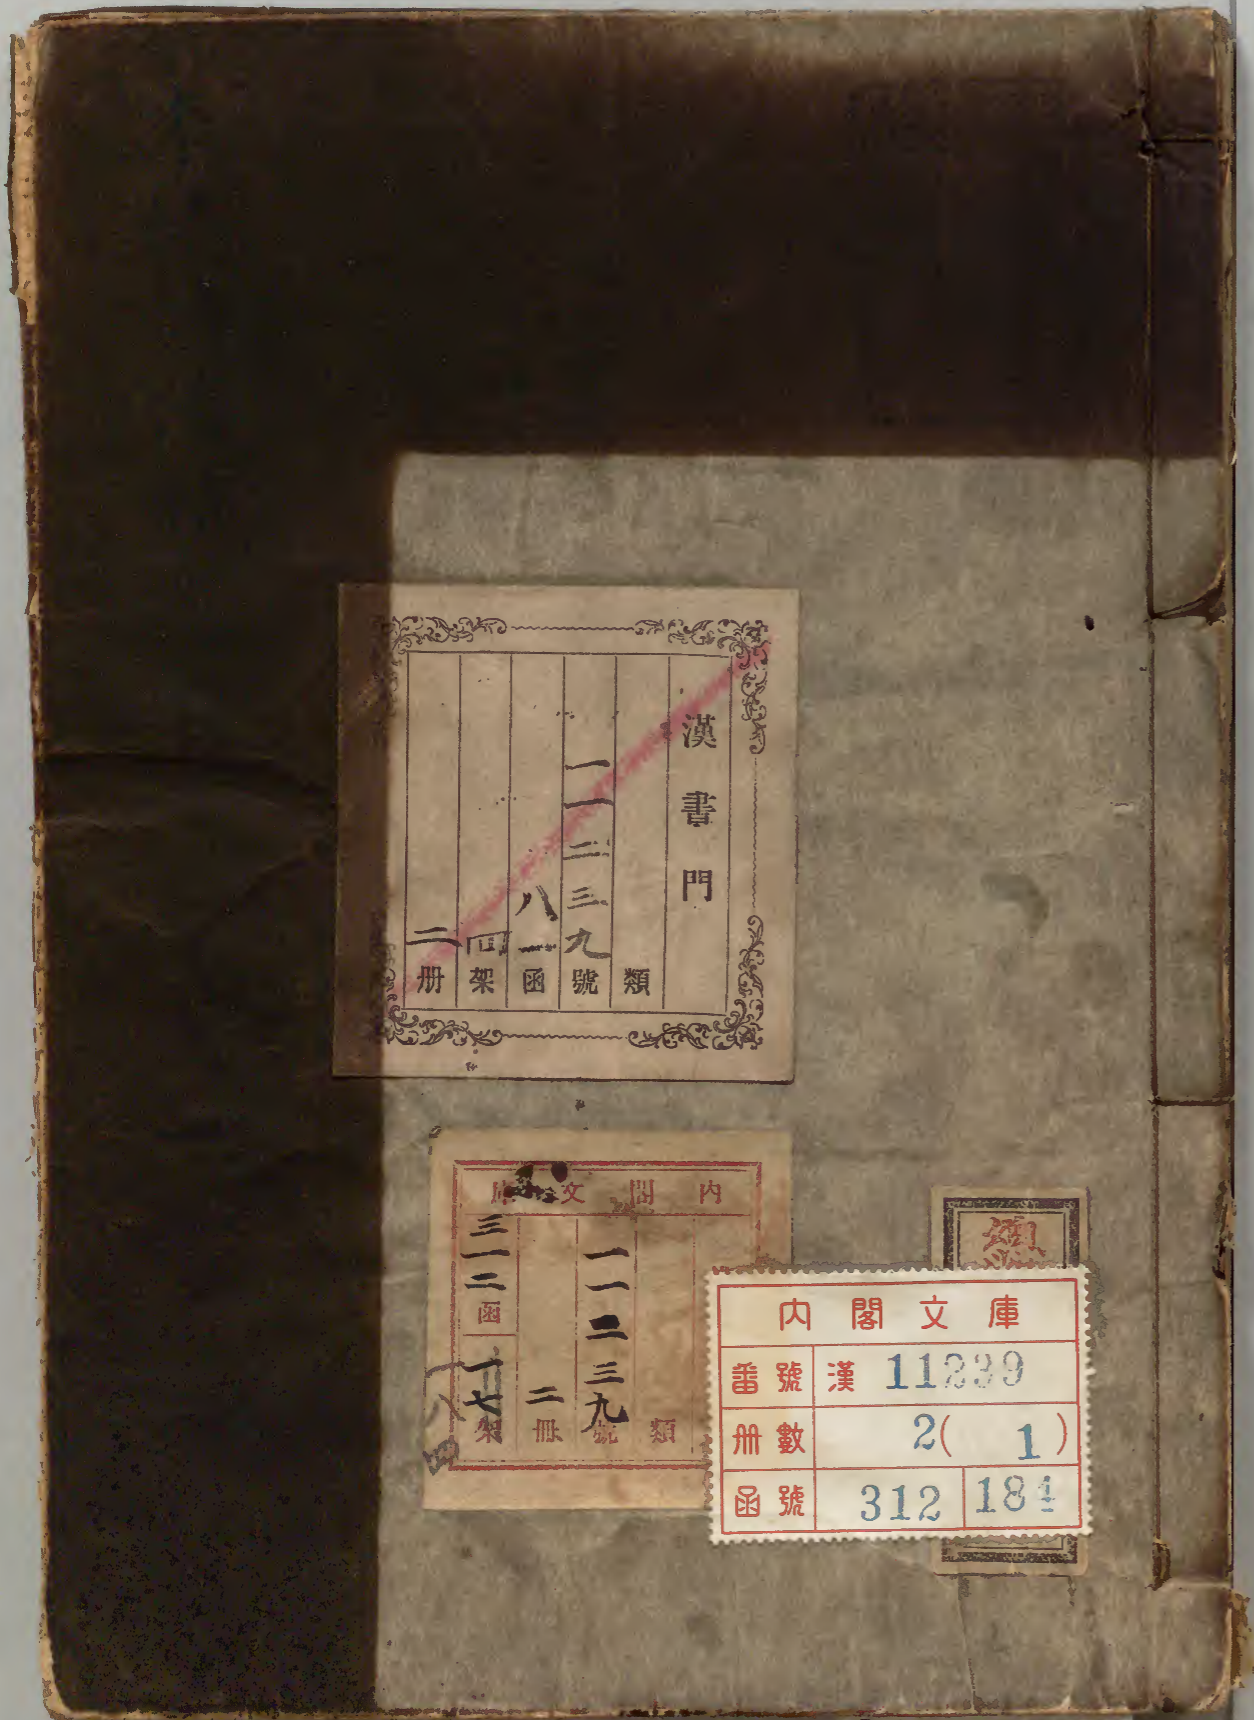 漢書門
類
一一二三九號
八一函
四架
二册
内閣文庫
類
一一二三九號
二冊
三一二函
一七架
内閣文庫
番號 漢 11239
册數 2(1)
函號 312 184